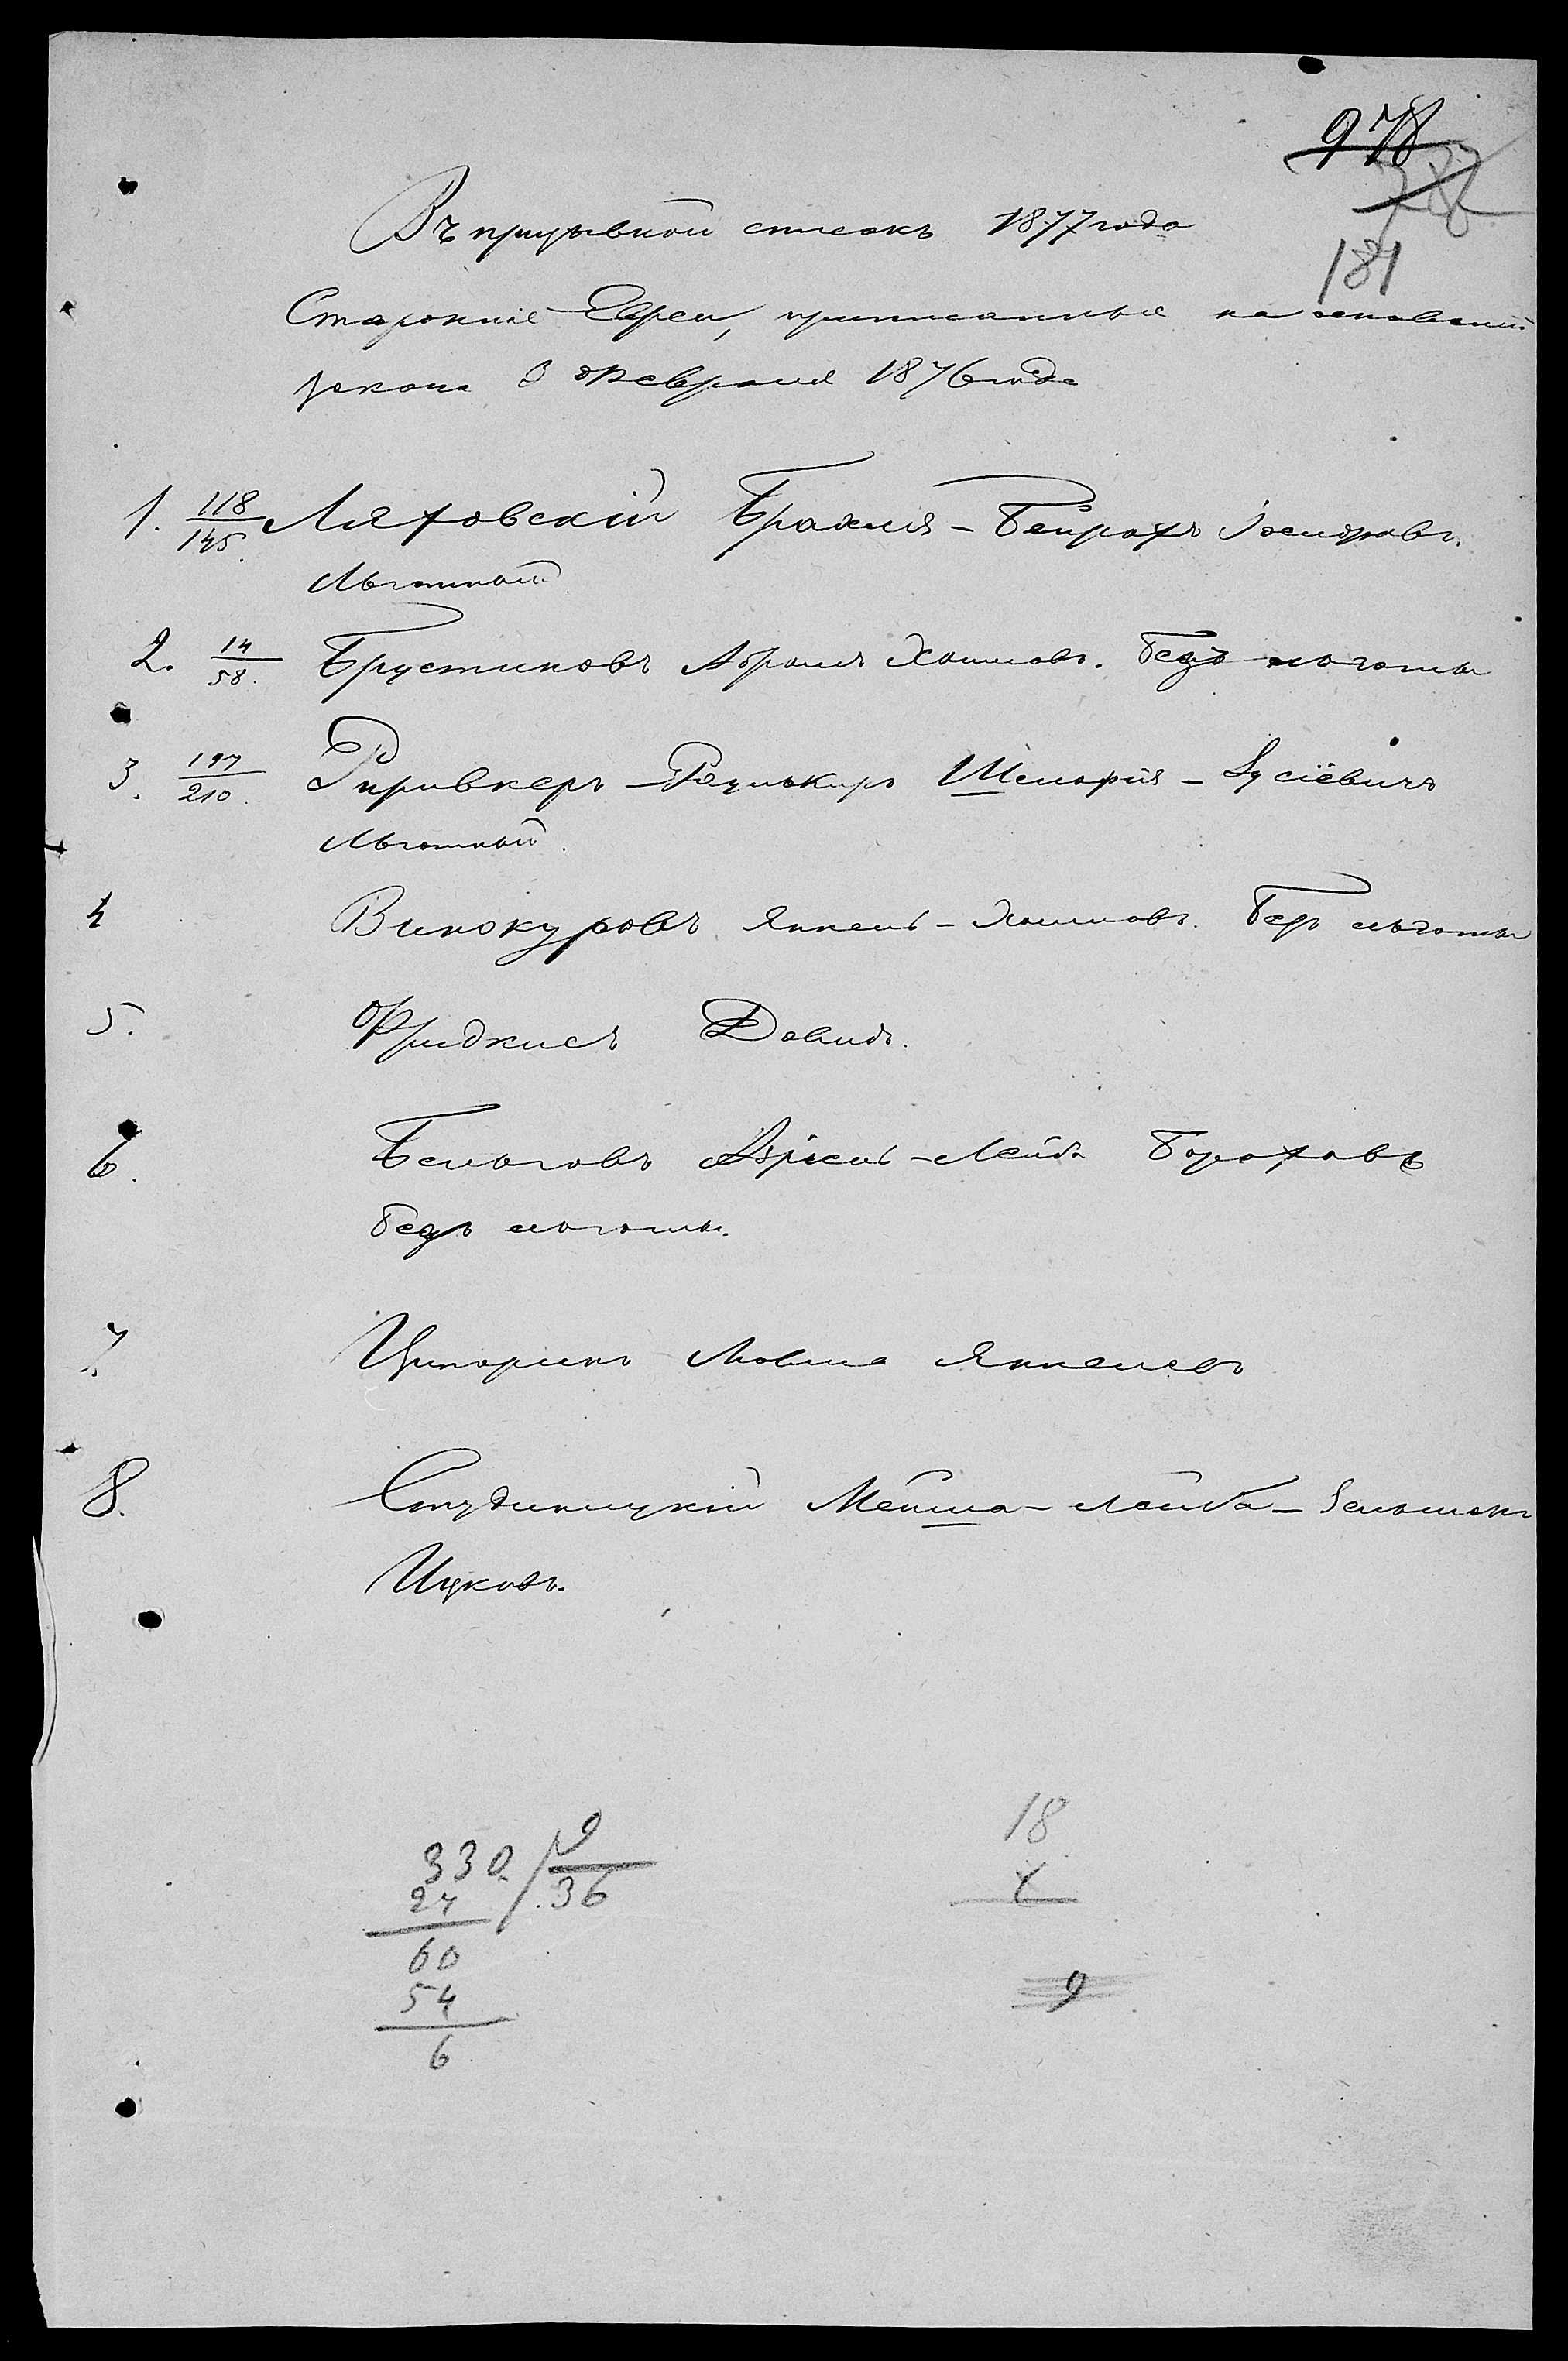 978
387
181
Въ призывной списокъ 1877 года
Сторонніе Евреи, приписанные на основаніи
закона 3 Февраля 1876 года
1. 118/145. Ляховскій Брахмія-Бейрахъ Іосифовъ.
Льготный
2. 14/58. Брустиновъ Абрамъ Хаимовъ. Безъ льготы
3. 197/210. Шельмфія-Лусіевичъ
Льготный.
4 Винокуровъ Янкель-Хаимовъ. Безъ льготы
5. Фридкисъ Давидъ.
6. Белаговъ Азріель-Лейба Бороховъ
безъ льготы.
7. Ципоринъ Мовша Янкелевъ
8. Студиницкій Мейша-Лейба-Зельманъ
Ицковъ.
330 9
27 36
60
54
6
18
9